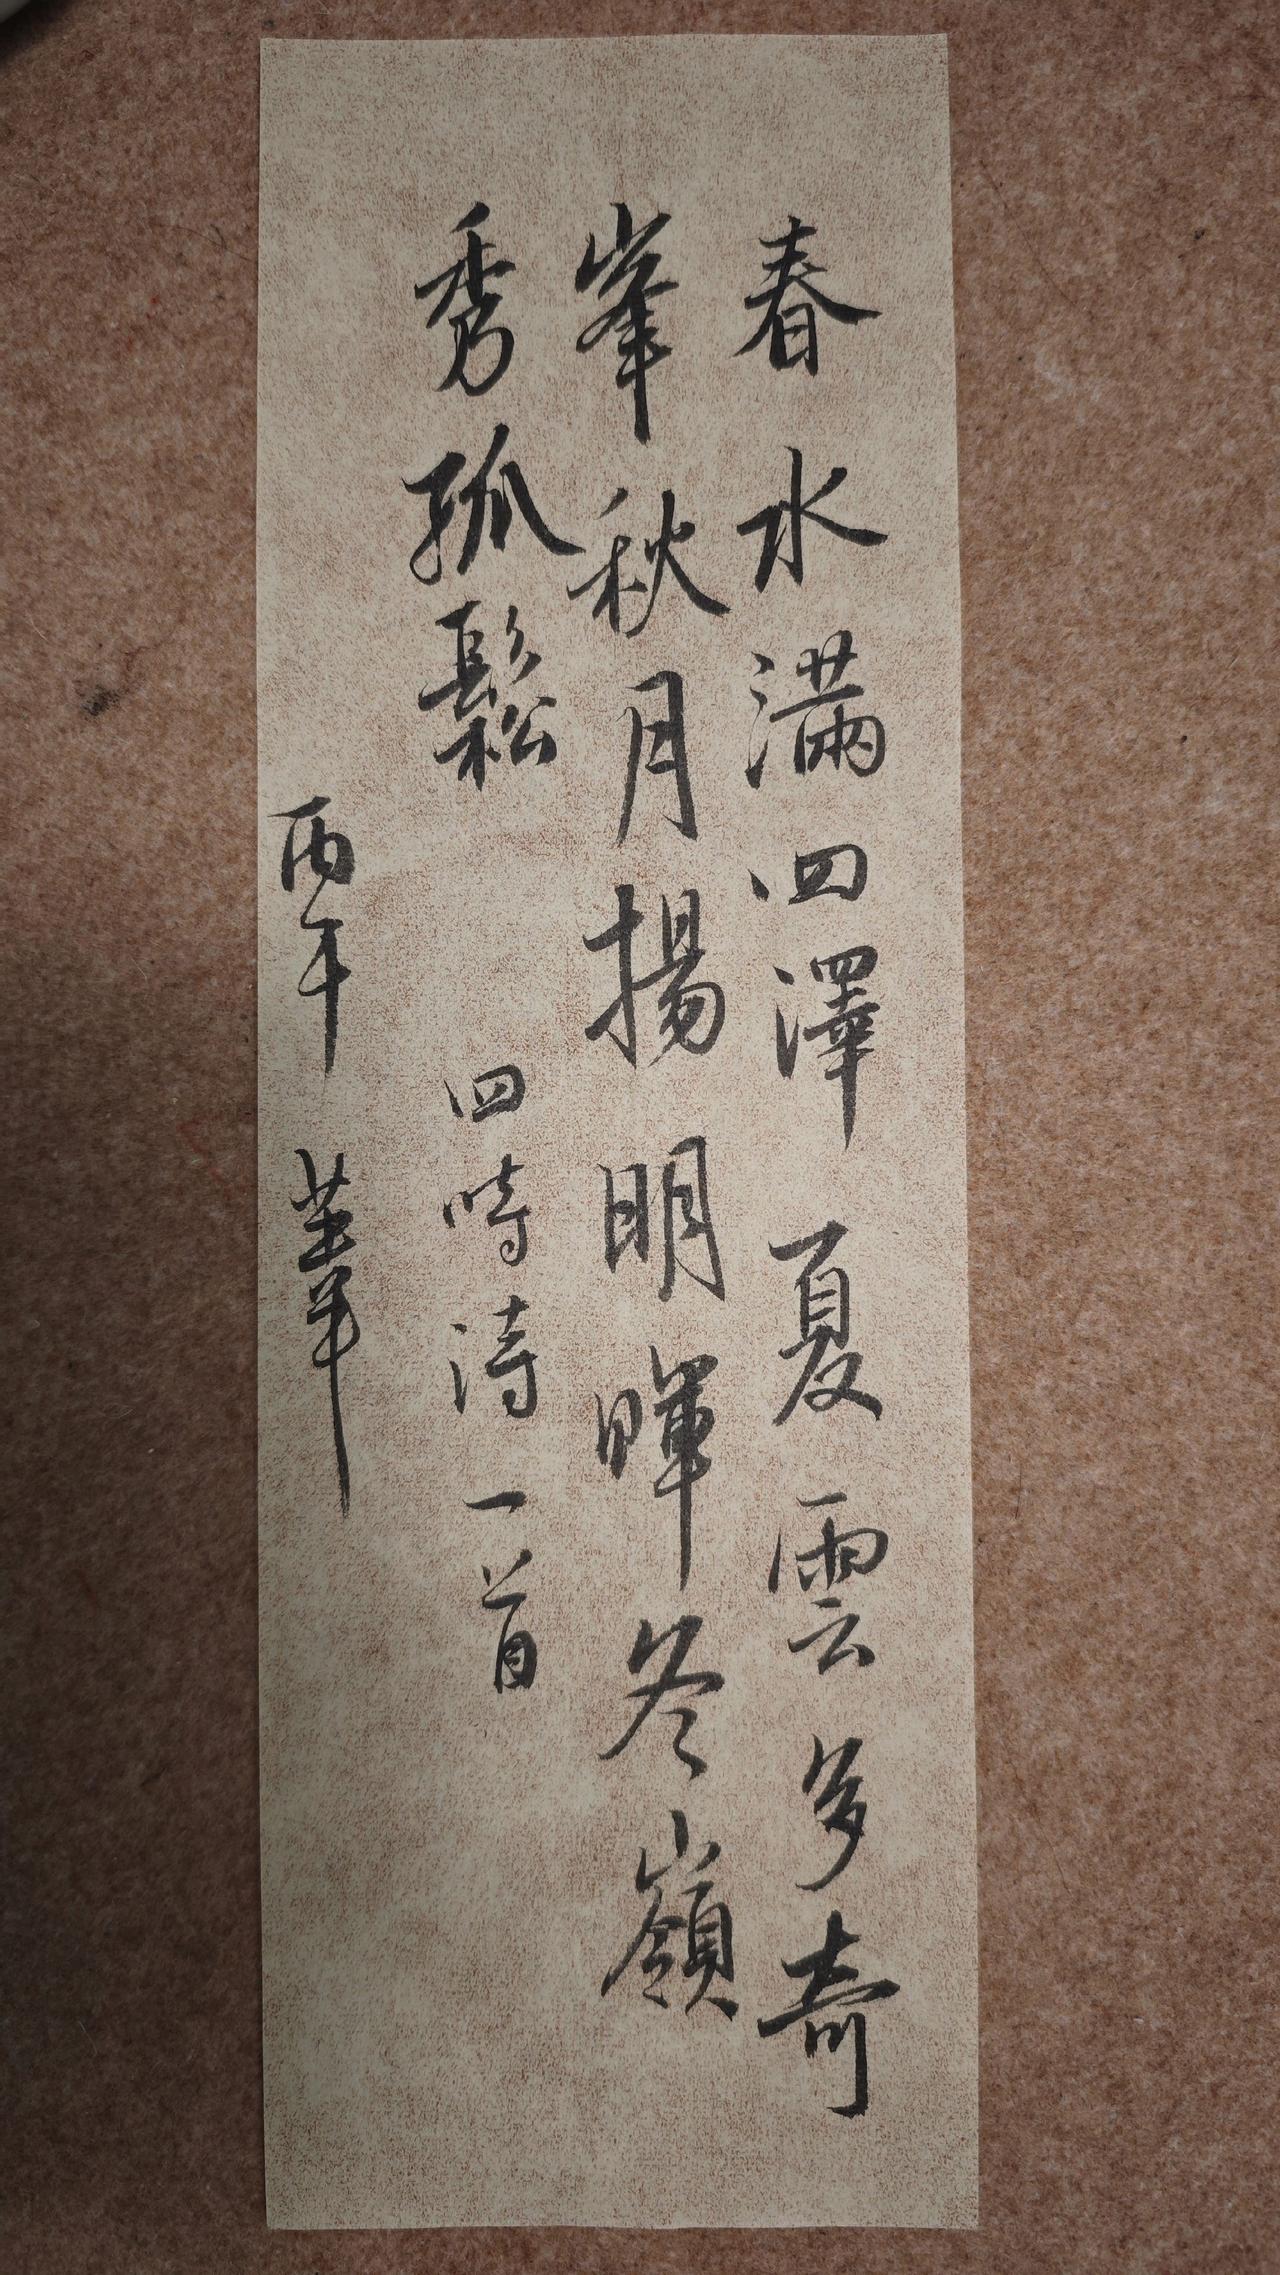 春水滿四澤夏雲多奇
峯秋月揚明暉冬嶺
秀孤鬆
四時詩一首
丙午 華